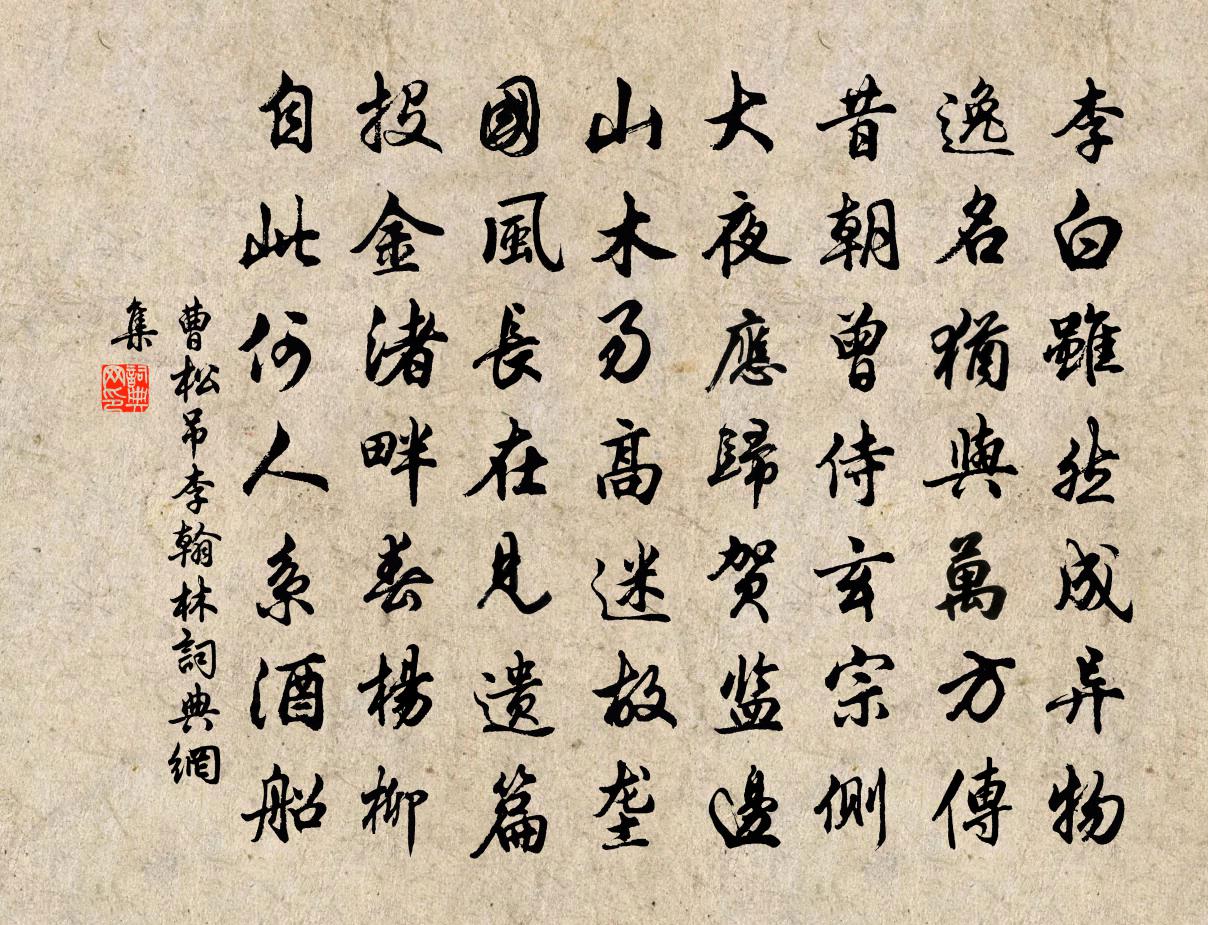 李白雖然成异物
逸名猶與萬方傳
昔朝曾侍玄宗側
大夜應歸贺监邊
山木易高迷故垄
國風長在見遗篇
投金渚畔春楊柳
自此何人系酒船
曹松吊李翰林詞典網
集
詞典
网印